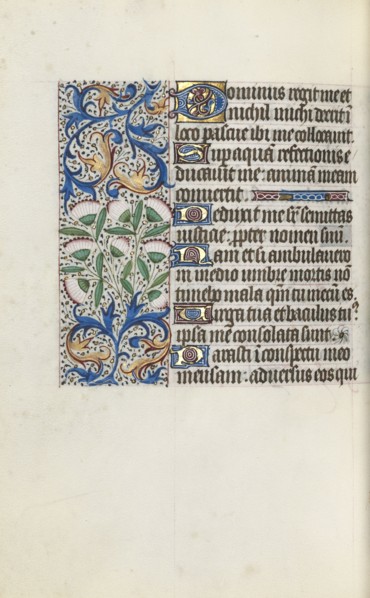 Dominus regit me et
nichil michi deerit ī
loco pascue ibi me collocauit.
Sup aquā refectionis e
ducauit me: animā meam
conuertit.
Deduxit me sr̄ semitas
iusticie: ꝓpter nomen suū.
Nam et si ambulauero
in medio umbre mortis nō
timebo mala qm̄ tu mecū es.
Uirga tua et baculus tu⁹:
ipsa me consolata sunt.
Parasti ī conspectu meo
mensam: aduersus eos qui